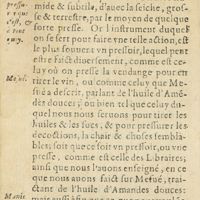 pressu-
mide & subtile, d'auec la seiche, gros-
se & terrestre, par le moyen de quelque
c'est, &
forte presse. Or l'instrument duquel
on se sert pour faire vne telle action, est
le plus souuent vn pressoir, lequel peut
estre faict diuersement, comme est ce-
luy où on presse la vendange pour en
tirer le vin, ou comme celuy que Me-
Mesué.
sué a descrit, parlant de l'huile d'Aman-
des douces; ou bien tel que celuy du-
quel nous nous seruons pour tirer les
huiles & les sucs, & pour pressurer les
decoctions, la chair & choses sembla-
bles; soit que ce soit vn pressoir, ou vne
presse, comme est celle des Libraires;
ainsi que nous l'auons enseigné, en ce
que nous auons faict sur Mesué, trai-
ctant de l'huile d'Amandes douces: